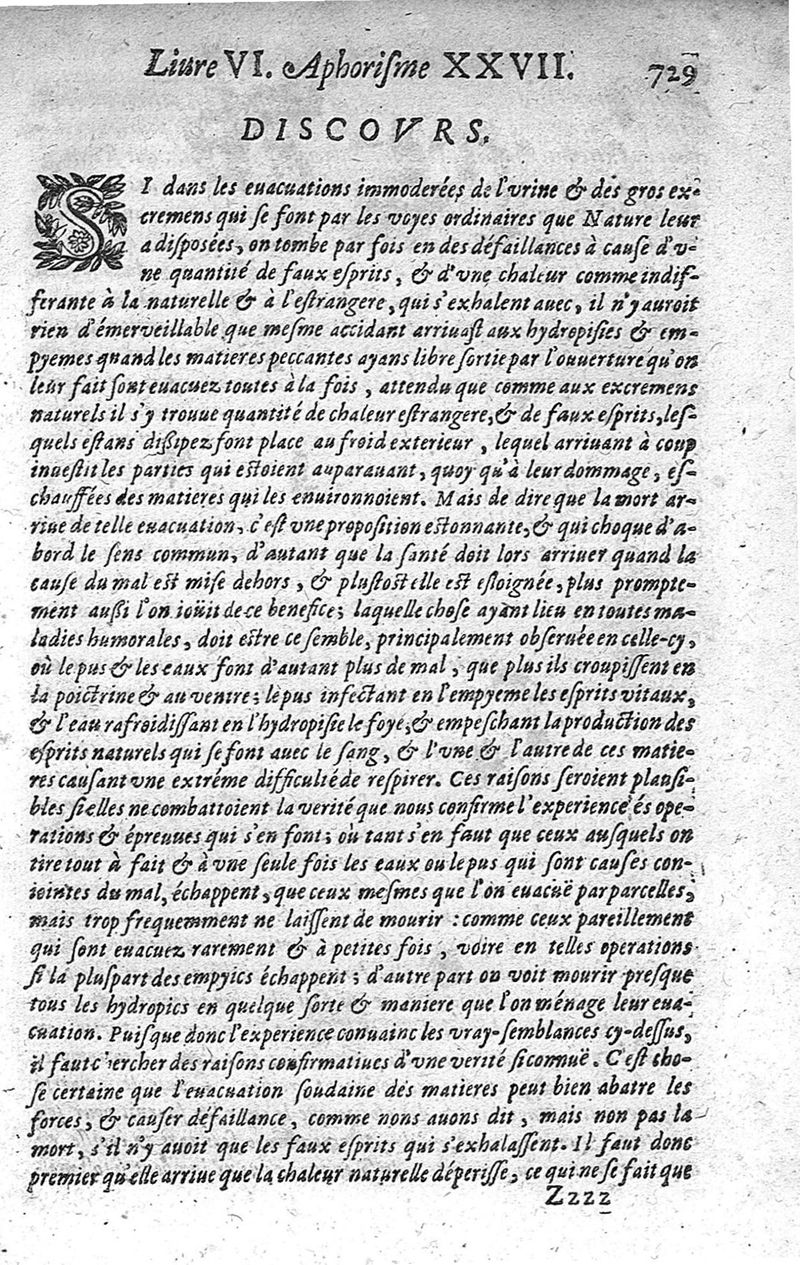 Liure VI. Aphoriſme XXVII. 729
DISCOVRS.
SI dans les euacuations immoderées de l'vrine & des gros ex-
cremens qui ſe font par les voyes ordinaires que Nature leur
a diſposées, on tombe par fois en des défaillances à cauſe d'v-
ne quantité de faux eſprits, & d'vne chaleur comme indif-
ferante à la naturelle & à l'eſtrangere, qui s'exhalent auec, il n'y auroit
rien d'émerveillable que meſme accidant arriuaſt aux hydropiſies & em-
pyemes quand les matieres peccantes ayans libre ſortie par l'ouuerture qu'on
leur fait ſont euacuez toutes à la fois, attendu que comme aux excremens
naturels il s'y trouue quantité de chaleur eſtrangere, & de faux eſprits, leſ-
quels eſtans dißipez font place au froid exterieur, lequel arriuant à coup
inueſtit les parties qui eſtoient auparauant, quoy qu'à leur dommage, eſ-
chauffées des matieres qui les enuironnoient. Mais de dire que la mort ar-
riue de telle euacuation, c'eſt vne propoſition eſtonnante, & qui choque d'a-
bord le ſens commun, d'autant que la ſanté doit lors arriuer quand la
cauſe du mal eſt miſe dehors, & pluſtoſt elle eſt eſloignée, plus prompte-
ment außi l'on ioüit de ce benefice; laquelle choſe ayant lieu en toutes ma-
ladies humorales, doit eſtre ce ſemble, principalement obſeruée en celle-cy,
où le pus & les eaux font d'autant plus de mal, que plus ils croupiſſent en
la poictrine & au ventre; le pus infectant en l'empyeme les eſprits vitaux,
& l'eau rafroidiſſant en l'hydropiſie le foye, & empeſchant la production des
eſprits naturels qui ſe font auec le ſang, & l'vne & l'autre de ces matie-
res cauſant vne extréme difficulté de reſpirer. Ces raiſons ſeroient plauſi-
bles ſi elles ne combattoient la verité que nous confirme l'experience és ope-
rations & épreuues qui s'en font; où tant s'en faut que ceux auſquels on
tire tout à fait & à vne ſeule fois les eaux ou le pus qui ſont cauſes con-
iointes du mal, échappent, que ceux meſmes que l'on euacuë par parcelles,
mais trop frequemment ne laiſſent de mourir : comme ceux pareillement
qui ſont euacuez rarement & à petites fois, voire en telles operations
ſi la pluſpart des empyics échappent; d'autre part on voit mourir preſque
tous les hydropics en quelque ſorte & maniere que l'on ménage leur eua-
cuation. Puiſque donc l'experience conuainc les vray-ſemblances cy-deſſus,
il faut chercher des raiſons confirmatiues d'vne verité ſi connuë. C'eſt cho-
ſe certaine que l'euacuation ſoudaine des matieres peut bien abatre les
forces, & cauſer défaillance, comme nons auons dit, mais non pas la
mort, s'il n'y auoit que les faux eſprits qui s'exhalaſſent. Il faut donc
premier qu'elle arriue que la chaleur naturelle déperiſſe, ce qui ne ſe fait que
Zzzz